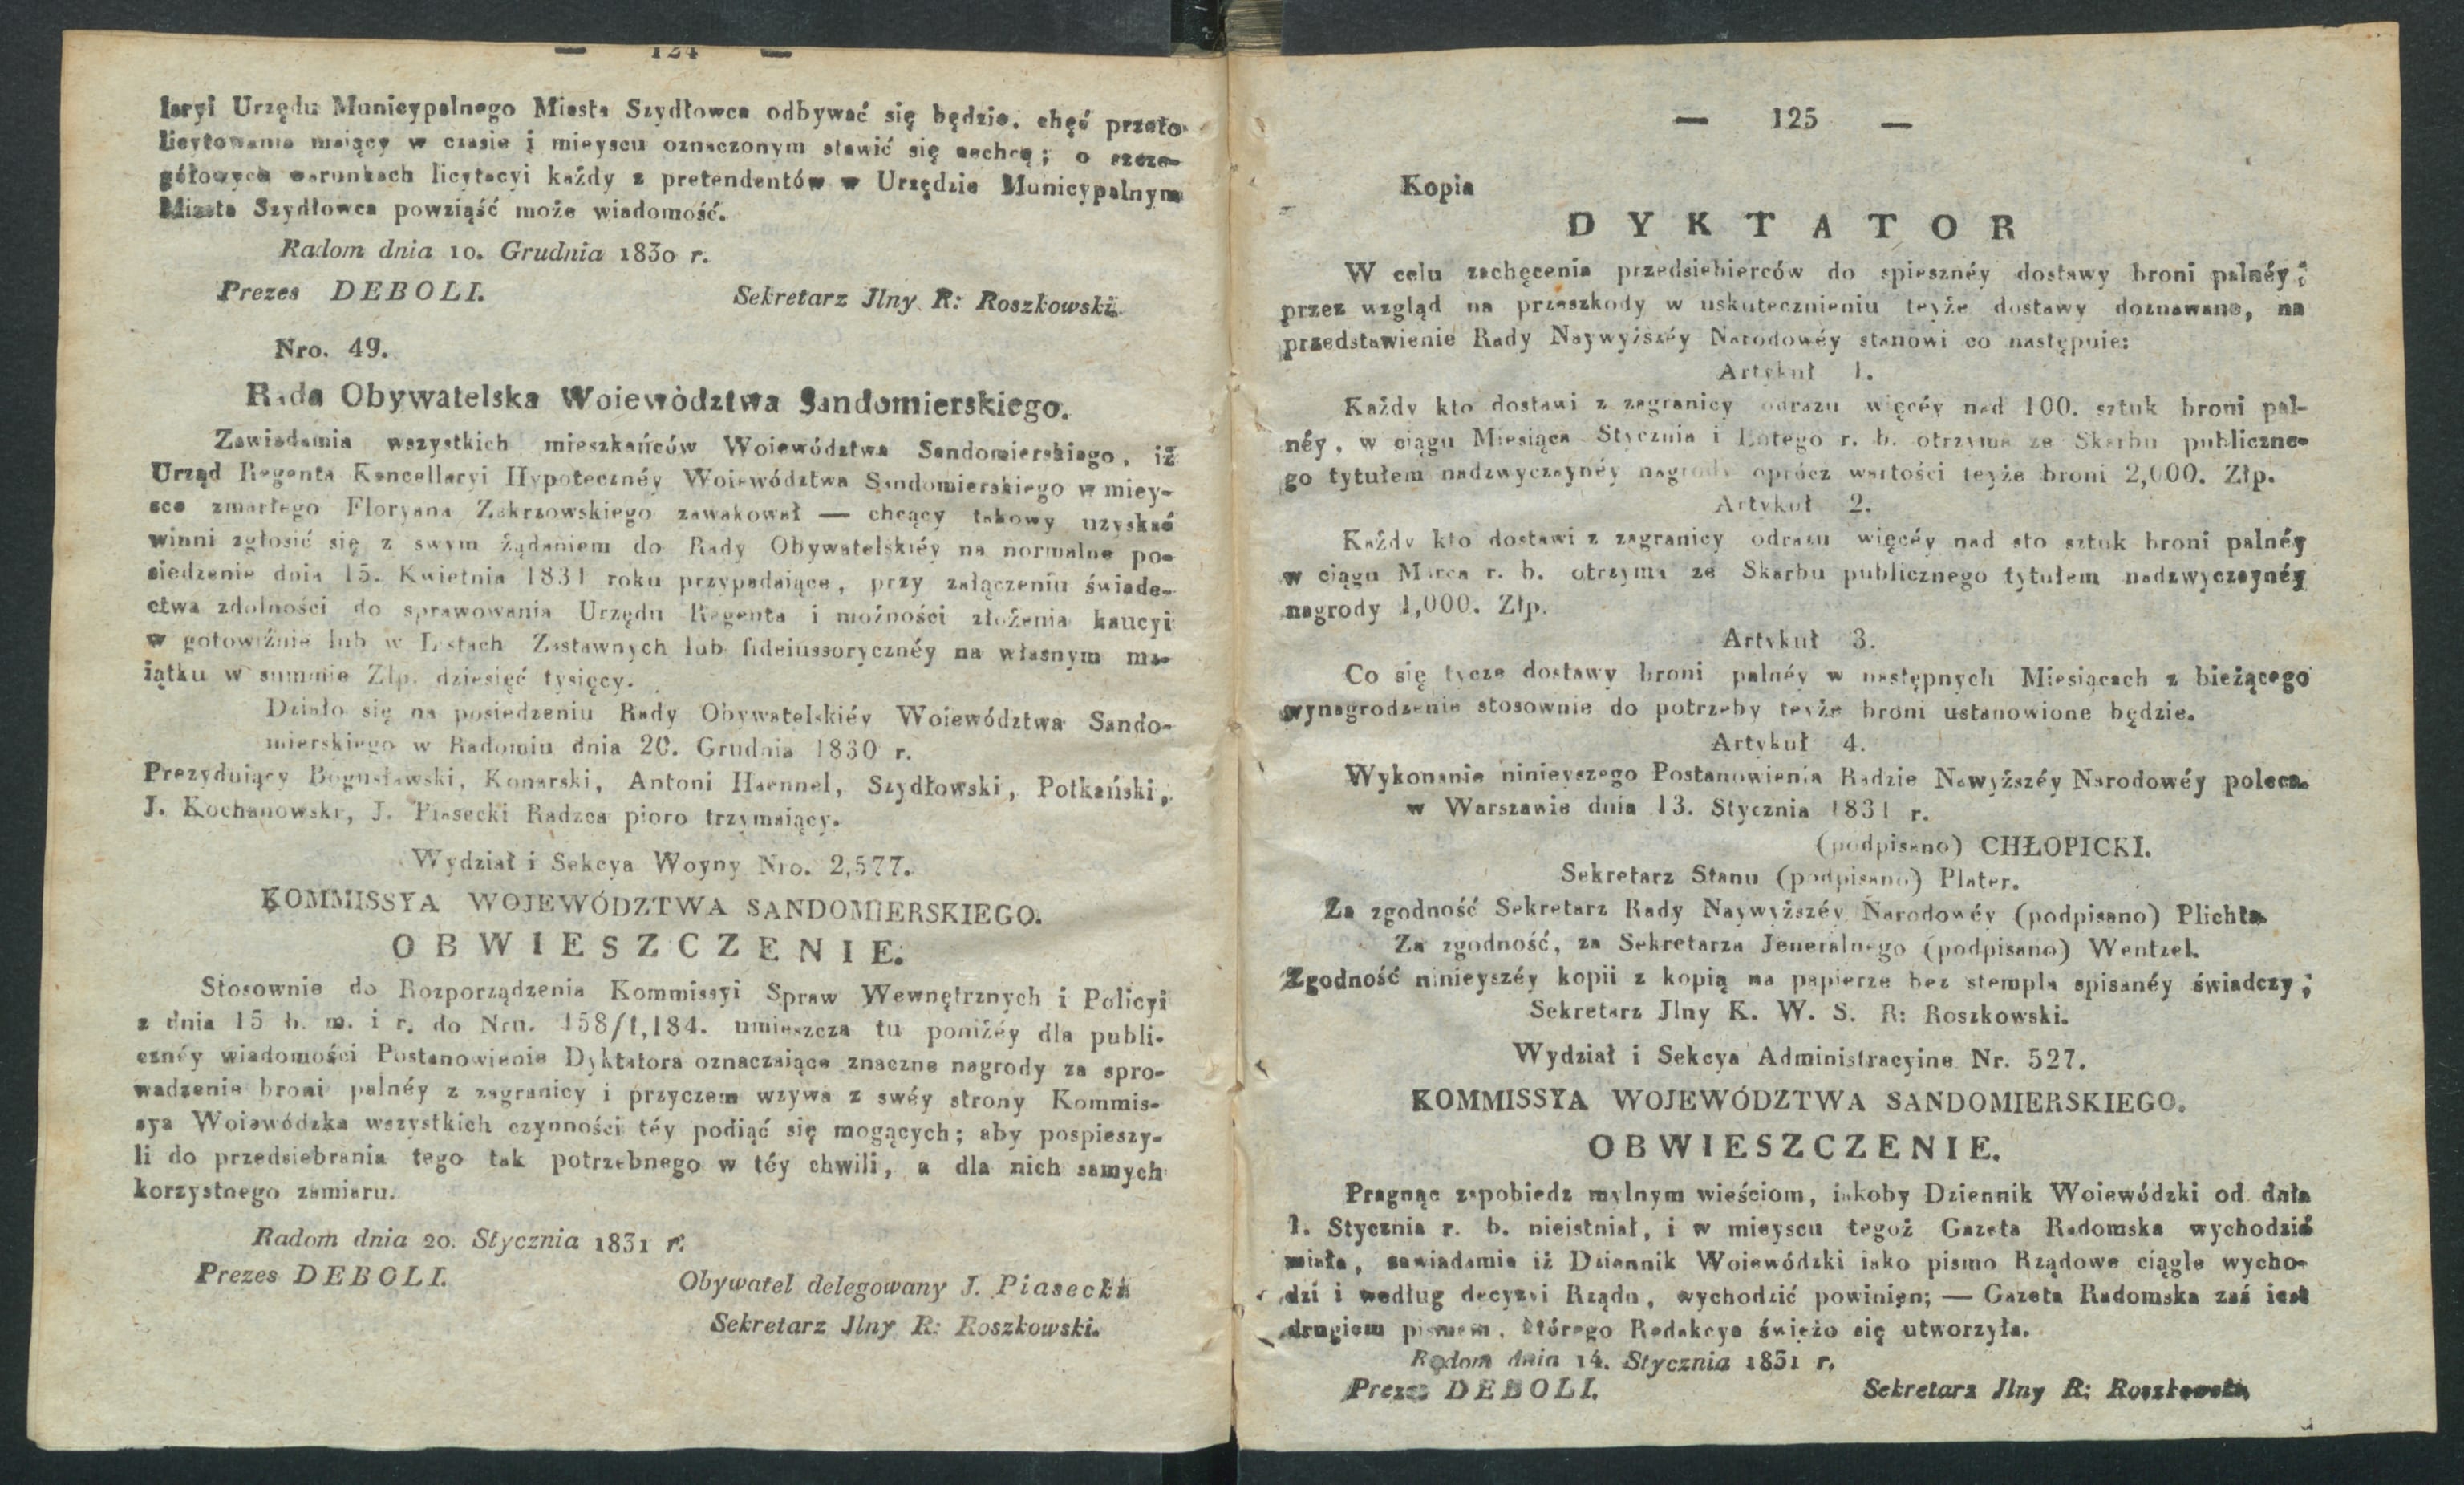 — 124 —
laryi Urzędu Municypalnego Miasta Szydłowca odbywać się będzie, chęć przeto
licytowania maiący w czasie i mieyscu oznaczonym stawić się zechcą; o szcze-
gółowych warunkach licytacyi każdy z pretendentów w Urzędzie Municypalnym
Miasta Szydłowca powziąść może wiadomość.
Radom dnia 10. Grudnia 1830 r.
Prezes DEBOLI. Sekretarz Jlny R: Roszkowski.
Nro. 49.
Rada Obywatelska Woiewództwa Sandomierskiego.
Zawiadamia wszystkich mieszkańców Woiewództwa Sandomierskiego, iż
Urząd Regenta Kancellaryi Hypotecznéy Woiewództwa Sandomierskiego w miey-
sce zmarłego Floryana Zakrzowskiego zawakował — chcący takowy uzyskać
winni zgłosić się z swym żądaniem do Rady Obywatelskiéy na normalne po-
siedzenie dnia 15. Kwietnia 1831 roku przypadaiące, przy załączeniu świade-
ctwa zdolności do sprawowania Urzędu Regenta i możności złożenia kaucyi
w gotowiźnie lub w Listach Zastawnych lub fideiussorycznéy na własnym ma-
iątku w summie Złp. dziesięć tysięcy.
Działo się na posiedzeniu Rady Obywatelskiéy Woiewództwa Sando-
mierskiego w Radomiu dnia 20. Grudnia 1830 r.
Prezyduiący Bogusławski, Konarski, Antoni Haennel, Szydłowski, Potkański,
J. Kochanowski, J. Piasecki Radzca pioro trzymaiący.
Wydział i Sekcya Woyny Nro. 2,577.
KOMMISSYA WOJEWÓDZTWA SANDOMIERSKIEGO.
OBWIESZCZENIE.
Stosownie do Rozporządzenia Kommissyi Spraw Wewnętrznych i Policyi
z dnia 15 b. m. i r. do Nru. 158/1,184. umieszcza tu poniżéy dla publi-
cznéy wiadomości Postanowienie Dyktatora oznaczaiące znaczne nagrody za spro-
wadzenie broni palnéy z zagranicy i przyczem wzywa z swéy strony Kommis-
sya Woiewódzka wszystkich czynności téy podiąć się mogących; aby pospieszy-
li do przedsiebrania tego tak potrzebnego w téy chwili, a dla nich samych
korzystnego zamiaru.
Radom dnia 20. Stycznia 1831 r.
Prezes DEBOLI. Obywatel delegowany J. Piasecki
Sekretarz Jlny R: Roszkowski.
— 125 —
Kopia
DYKTATOR
W celu zachęcenia przedsiebierców do spiesznéy dostawy broni palnéy;
przez wzgląd na przeszkody w uskutecznieniu teyże dostawy doznawane, na
przedstawienie Rady Naywyższéy Narodowéy stanowi co następuie:
Artykuł 1.
Każdy kto dostawi z zagranicy odrazu więcéy nad 100. sztuk broni pal-
néy, w ciągu Miesiąca Stycznia i Lutego r. b. otrzyma ze Skarbu publiczne-
go tytułem nadzwyczaynéy nagrody oprócz wartości teyże broni 2,000. Złp.
Artykuł 2.
Każdy kto dostawi z zagranicy odrazu więcéy nad sto sztuk broni palnéy
w ciągu Marca r. b. otrzyma ze Skarbu publicznego tytułem nadzwyczaynéy
nagrody 1,000. Złp.
Artykuł 3.
Co się tycze dostawy broni palnéy w następnych Miesiącach z bieżącego
wynagrodzenie stosownie do potrzeby teyże broni ustanowione będzie.
Artykuł 4.
Wykonanie ninieyszego Postanowienia Radzie Nawyższéy Narodowéy poleca.
w Warszawie dnia 13. Stycznia 1831 r.
(podpisano) CHŁOPICKI.
Sekretarz Stanu (podpisano) Plater.
Za zgodność Sekretarz Rady Naywyższéy Narodowéy (podpisano) Plichta.
Za zgodność, za Sekretarza Jeneralnego (podpisano) Wentzel.
Zgodność ninieyszéy kopii z kopią na papierze bez stempla spisanéy świadczy;
Sekretarz Jlny K. W. S. R: Roszkowski.
Wydział i Sekcya Administracyina Nr. 527.
KOMMISSYA WOJEWÓDZTWA SANDOMIERSKIEGO.
OBWIESZCZENIE.
Pragnąc zapobiedz mylnym wieściom, iakoby Dziennik Woiewódzki od dnia
1. Stycznia r. b. nieistniał, i w mieyscu tegoż Gazeta Radomska wychodzić
miała, zawiadamia iż Dziennik Woiewódzki iako pismo Rządowe ciągle wycho-
dzi i według decyzyi Rządu, wychodzić powinien; — Gazeta Radomska zaś iest
drugiem pismem, którego Redakcya świeżo się utworzyła.
Radom dnia 14. Stycznia 1831 r.
Prezes DEBOLI. Sekretarz Jlny R: Roszkowski